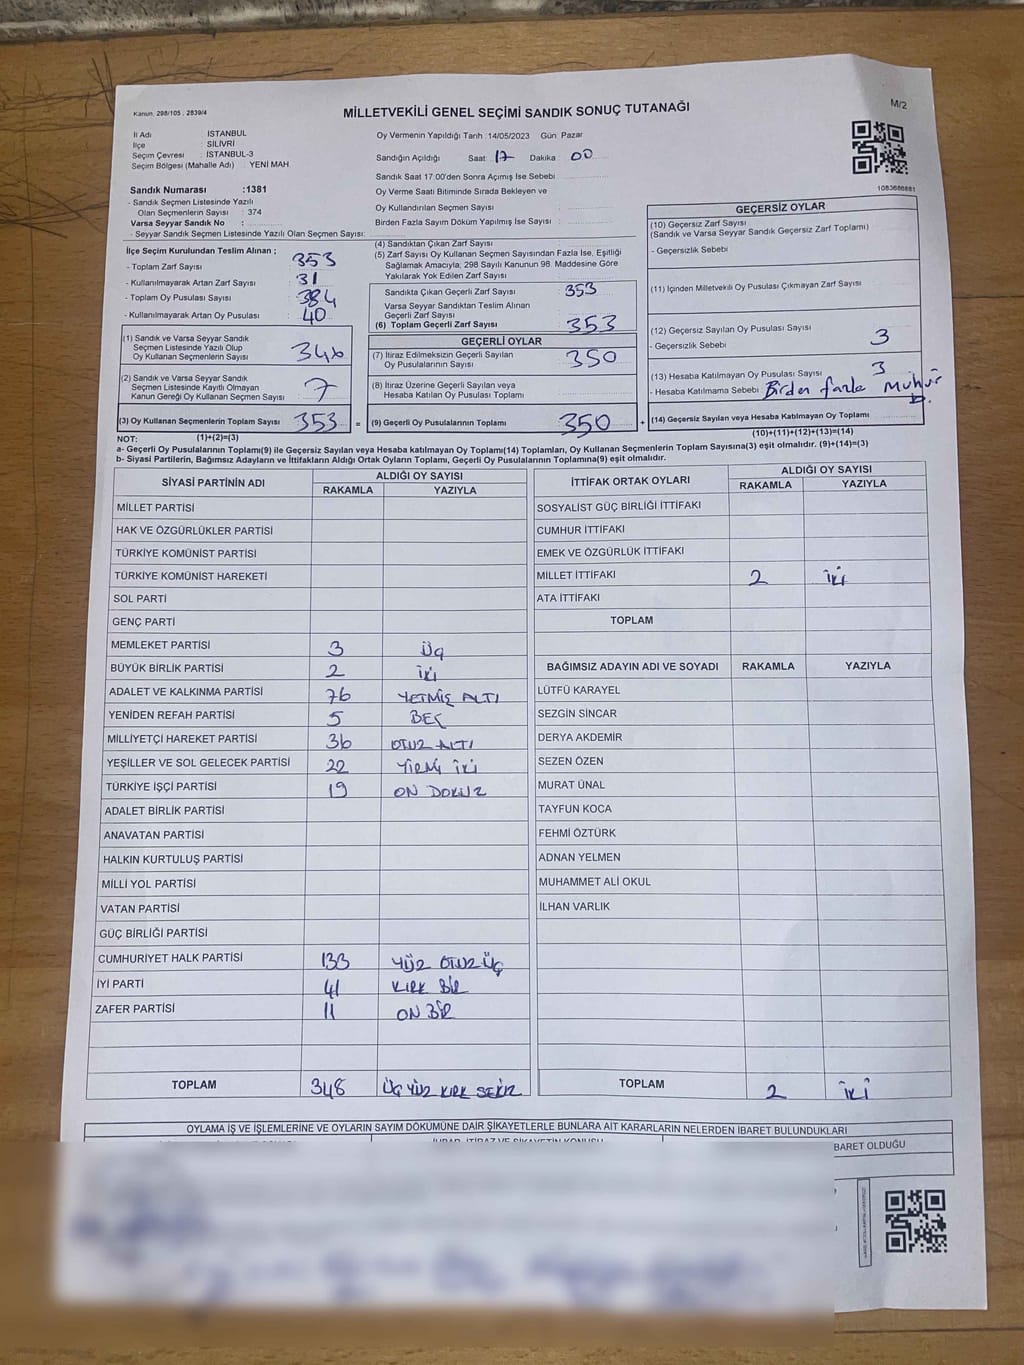 Kanun. 298/105 , 2839/4
MİLLETVEKİLİ GENEL SEÇİMİ SANDIK SONUÇ TUTANAĞI
M/2
İl Adı : İSTANBUL
İlçe : SİLİVRİ
Seçim Çevresi : İSTANBUL-3
Seçim Bölgesi (Mahalle Adı) : YENİ MAH.
Sandık Numarası :1381
- Sandık Seçmen Listesinde Yazılı
Olan Seçmenlerin Sayısı : 374
Varsa Seyyar Sandık No :
- Seyyar Sandık Seçmen Listesinde Yazılı Olan Seçmen Sayısı:
Oy Vermenin Yapıldığı Tarih :14/05/2023 Gün: Pazar
Sandığın Açıldığı Saat: 17 Dakika : 00
Sandık Saat 17:00'den Sonra Açımış İse Sebebi
Oy Verme Saati Bitiminde Sırada Bekleyen ve
Oy Kullandırılan Seçmen Sayısı
Birden Fazla Sayım Döküm Yapılmış İse Sayısı
1083688881
İlçe Seçim Kurulundan Teslim Alınan ;
- Toplam Zarf Sayısı 353
- Kullanılmayarak Artan Zarf Sayısı 31
- Toplam Oy Pusulası Sayısı 384
- Kullanılmayarak Artan Oy Pusulası 40
(1) Sandık ve Varsa Seyyar Sandık
Seçmen Listesinde Yazılı Olup
Oy Kullanan Seçmenlerin Sayısı 346
(2) Sandık ve Varsa Seyyar Sandık
Seçmen Listesinde Kayıtlı Olmayan
Kanun Gereği Oy Kullanan Seçmen Sayısı 7
(3) Oy Kullanan Seçmenlerin Toplam Sayısı 353 =
(4) Sandıktan Çıkan Zarf Sayısı
(5) Zarf Sayısı Oy Kullanan Seçmen Sayısından Fazla İse, Eşitliği
Sağlamak Amacıyla, 298 Sayılı Kanunun 98. Maddesine Göre
Yakılarak Yok Edilen Zarf Sayısı
Sandıkta Çıkan Geçerli Zarf Sayısı 353
Varsa Seyyar Sandıktan Teslim Alınan
Geçerli Zarf Sayısı
(6) Toplam Geçerli Zarf Sayısı 353
GEÇERLİ OYLAR
(7) İtiraz Edilmeksizin Geçerli Sayılan
Oy Pusulalarının Sayısı 350
(8) İtiraz Üzerine Geçerli Sayılan veya
Hesaba Katılan Oy Pusulası Toplamı
(9) Geçerli Oy Pusulalarının Toplamı 350 +
GEÇERSİZ OYLAR
(10) Geçersiz Zarf Sayısı
(Sandık ve Varsa Seyyar Sandık Geçersiz Zarf Toplamı)
- Geçersizlik Sebebi
(11) İçinden Milletvekili Oy Pusulası Çıkmayan Zarf Sayısı
(12) Geçersiz Sayılan Oy Pusulası Sayısı 3
- Geçersizlik Sebebi
(13) Hesaba Katılmayan Oy Pusulası Sayısı 3
- Hesaba Katılmama Sebebi Birden fazla Mühür
b.
(14) Geçersiz Sayılan veya Hesaba Katılmayan Oy Toplamı
NOT: (1)+(2)=(3)
(10)+(11)+(12)+(13)=(14)
a- Geçerli Oy Pusulalarının Toplamı(9) ile Geçersiz Sayılan veya Hesaba katılmayan Oy Toplamı(14) Toplamları, Oy Kullanan Seçmenlerin Toplam Sayısına(3) eşit olmalıdır. (9)+(14)=(3)
b- Siyasi Partilerin, Bağımsız Adayların ve İttifakların Aldığı Ortak Oyların Toplamı, Geçerli Oy Pusulalarının Toplamına(9) eşit olmalıdır.
SİYASİ PARTİNİN ADI
ALDIĞI OY SAYISI
RAKAMLA YAZIYLA
MİLLET PARTİSİ
HAK VE ÖZGÜRLÜKLER PARTİSİ
TÜRKİYE KOMÜNİST PARTİSİ
TÜRKİYE KOMÜNİST HAREKETİ
SOL PARTİ
GENÇ PARTİ
MEMLEKET PARTİSİ 3 üç
BÜYÜK BİRLİK PARTİSİ 2 iki
ADALET VE KALKINMA PARTİSİ 76 YETMİŞ ALTI
YENİDEN REFAH PARTİSİ 5 BEŞ
MİLLİYETÇİ HAREKET PARTİSİ 36 OTUZ ALTI
YEŞİLLER VE SOL GELECEK PARTİSİ 22 YİRMİ İKİ
TÜRKİYE İŞÇİ PARTİSİ 19 ON DOKUZ
ADALET BİRLİK PARTİSİ
ANAVATAN PARTİSİ
HALKIN KURTULUŞ PARTİSİ
MİLLİ YOL PARTİSİ
VATAN PARTİSİ
GÜÇ BİRLİĞİ PARTİSİ
CUMHURİYET HALK PARTİSİ 133 YÜZ OTUZ ÜÇ
İYİ PARTİ 41 KIRK BİR
ZAFER PARTİSİ 11 ON BİR
TOPLAM 348 ÜÇ YÜZ KIRK SEKİZ
İTTİFAK ORTAK OYLARI
ALDIĞI OY SAYISI
RAKAMLA YAZIYLA
SOSYALİST GÜÇ BİRLİĞİ İTTİFAKI
CUMHUR İTTİFAKI
EMEK VE ÖZGÜRLÜK İTTİFAKI
MİLLET İTTİFAKI 2 iki
ATA İTTİFAKI
TOPLAM
BAĞIMSIZ ADAYIN ADI VE SOYADI RAKAMLA YAZIYLA
LÜTFÜ KARAYEL
SEZGİN SİNCAR
DERYA AKDEMİR
SEZEN ÖZEN
MURAT ÜNAL
TAYFUN KOCA
FEHMİ ÖZTÜRK
ADNAN YELMEN
MUHAMMET ALİ OKUL
İLHAN VARLIK
TOPLAM 2 İKİ
OYLAMA İŞ VE İŞLEMLERİNE VE OYLARIN SAYIM DÖKÜMÜNE DAİR ŞİKAYETLERLE BUNLARA AİT KARARLARIN NELERDEN İBARET BULUNDUKLARI
İHBAR, İTİRAZ VE ŞİKAYETİN KONUSU
BARET OLDUĞU